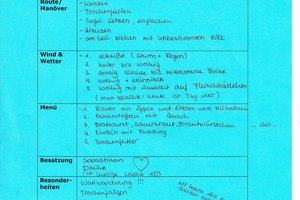 Route/
Manöver
- Wenden
- Trockenfallen
- Segel setzen, einpacken
- Kreuzen
- am Seil ziehen mit unbestimmtem Ziel
Wind &
Wetter
- 1. scheiße (Sturm + Regen)
- 2. heiter bis wolkig
- 3. sonnig kleine bis mittelstarke Brise
- 4. wolkig + stürmisch
- 5. wolkig mit Aussicht auf Fleischbällchen
(man beachte: heute ist Tag vier)
Menü
- 1. Risotto mit Äpfeln und Erbsen und Hühnchen
- 2. Pellkartoffeln mit Quark
- 3. Bratwurst, Sauerkraut, Bratwürstchen
- 4. Nudeln mit Pudding
- 5. Trockenfutter
Besatzung
Sebastiaan
Dauke
(so lustige Lache xD)
Besonder-
heiten
Wattwanderung !!!
Trockenfallen
wir haben die